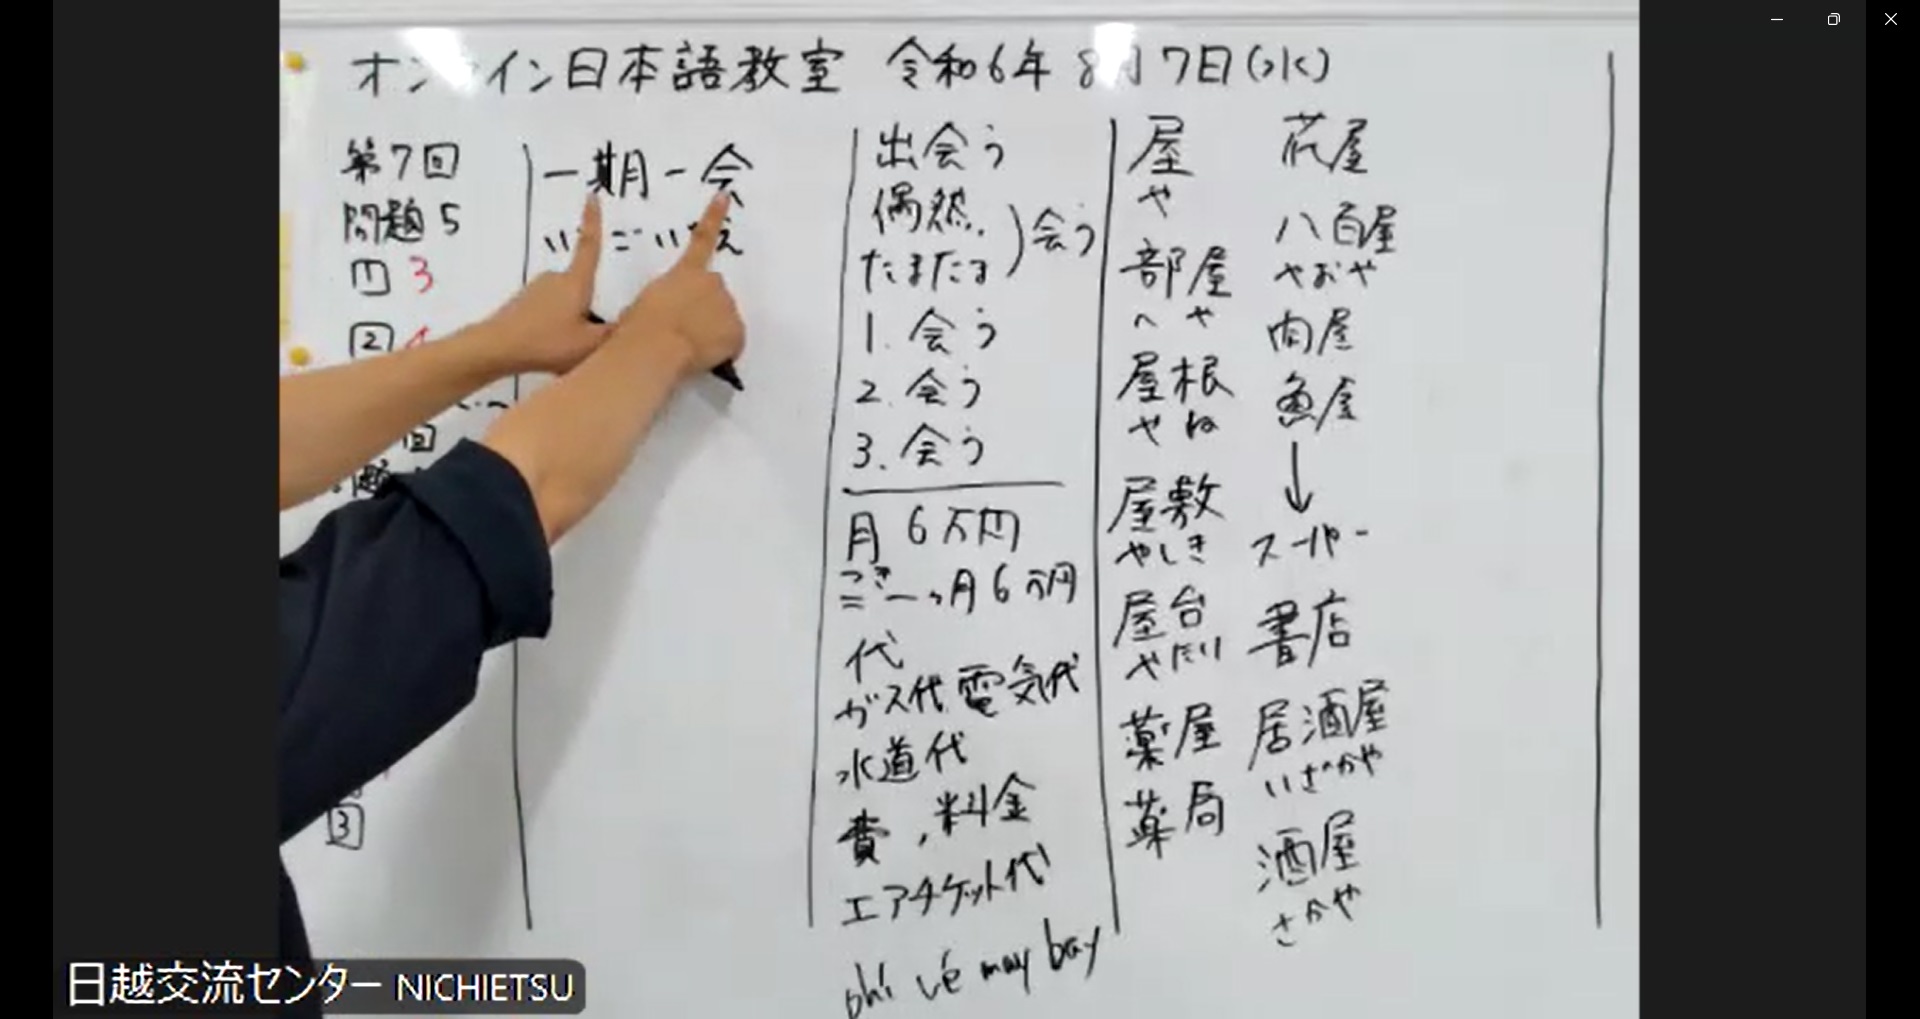 オンライン日本語教室 令和6年 8月7日(水)
第7回
問題5
1 3
2
回
題
3
一期一会
出会う
偶然.
たまたま
)会う
1. 会う
2. 会う
3. 会う
月6万円
つき
=一ヶ月6万円
代
ガス代 電気代
水道代
費, 料金
エアチケット代
phí vé may bay
屋
や
部屋
へや
屋根
やね
屋敷
やしき
屋台
やたい
薬屋
薬局
花屋
八百屋
やおや
肉屋
魚屋
↓
スーパー
書店
居酒屋
いざかや
酒屋
さかや
日越交流センター NICHIETSU